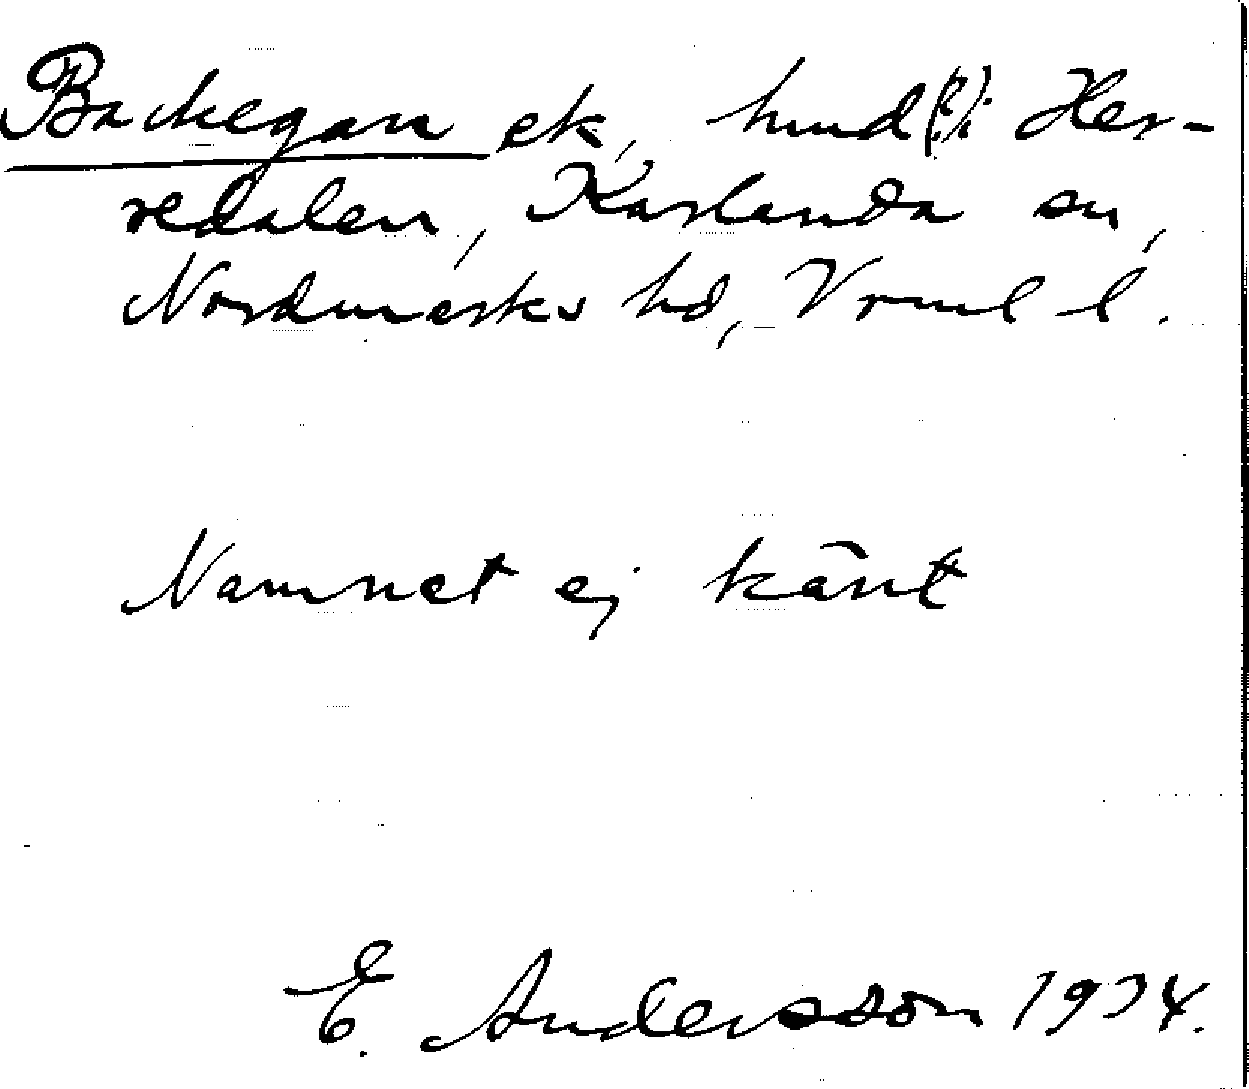 Backegan ek, hund(!) i Her-
redalen, Karlanda sn,
Nordmarks hd, Vrml l.
Namnet ej känt
E. Andersson 1934.